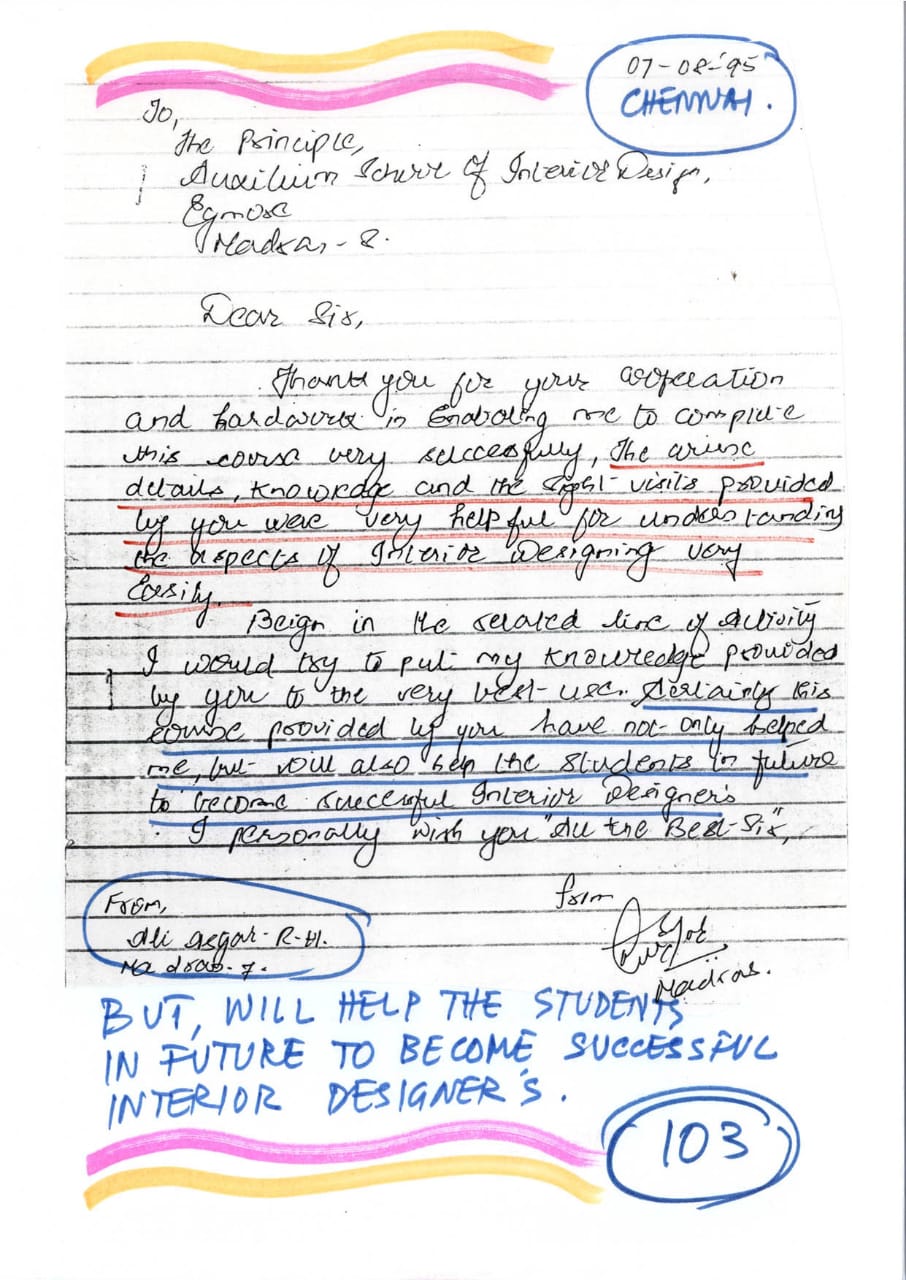 07-08-'95
CHENNAI.
To,
The Principle,
Auxilium School Of Interior Design,
Egmore
Madras-8.
Dear Sir,
Thank you for your cooperation
and hardwork in Enabaling me to complete
this course very successfully, The
details, knowledge and the sight-visits provided
by you were very helpful for understanding
the aspects of Interior Designing very
Easily.
Beign in the related line of Activity
I would try to put my knowledge provided
by you to the very best-use. Certainly this
course provided by you have not-only helped
me, but will also help the students in future
to become successful Interior Designer's
I personally wish you "All the Best-Sir",
From,
Ali Asgar-R-H.
Madras-7.
from
Madras.
BUT, WILL HELP THE STUDENTS
IN FUTURE TO BECOME SUCCESSFUL
INTERIOR DESIGNER'S.
103